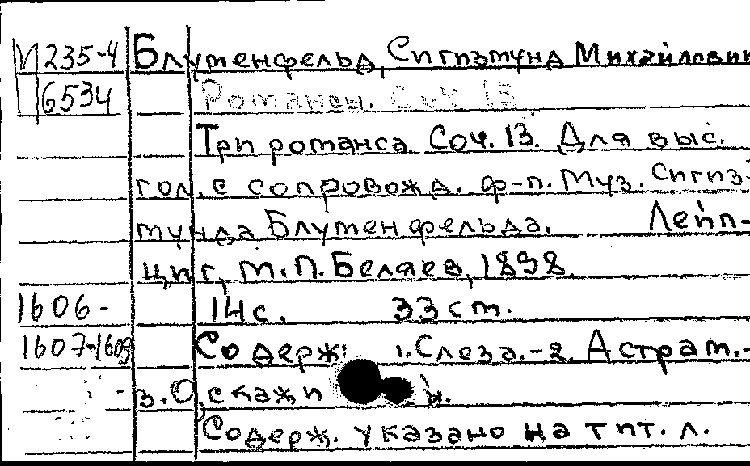 И 235-4 Блуменфельд, Сигизмунд Михайлович
6534 Романсы. Соч 13
Три романса Соч. 13. Для выс.
гол. с сопровожд. ф-п. Муз. Сигиз-
мунда Блуменфельда. Лейп-
циг, М.П. Беляев, 1898
1606- 14с. 33 ст.
1607-1609 Содерж: 1. Слеза.-2. Астрам.-
3. О, скажи
Содерж. указано на тит. л.